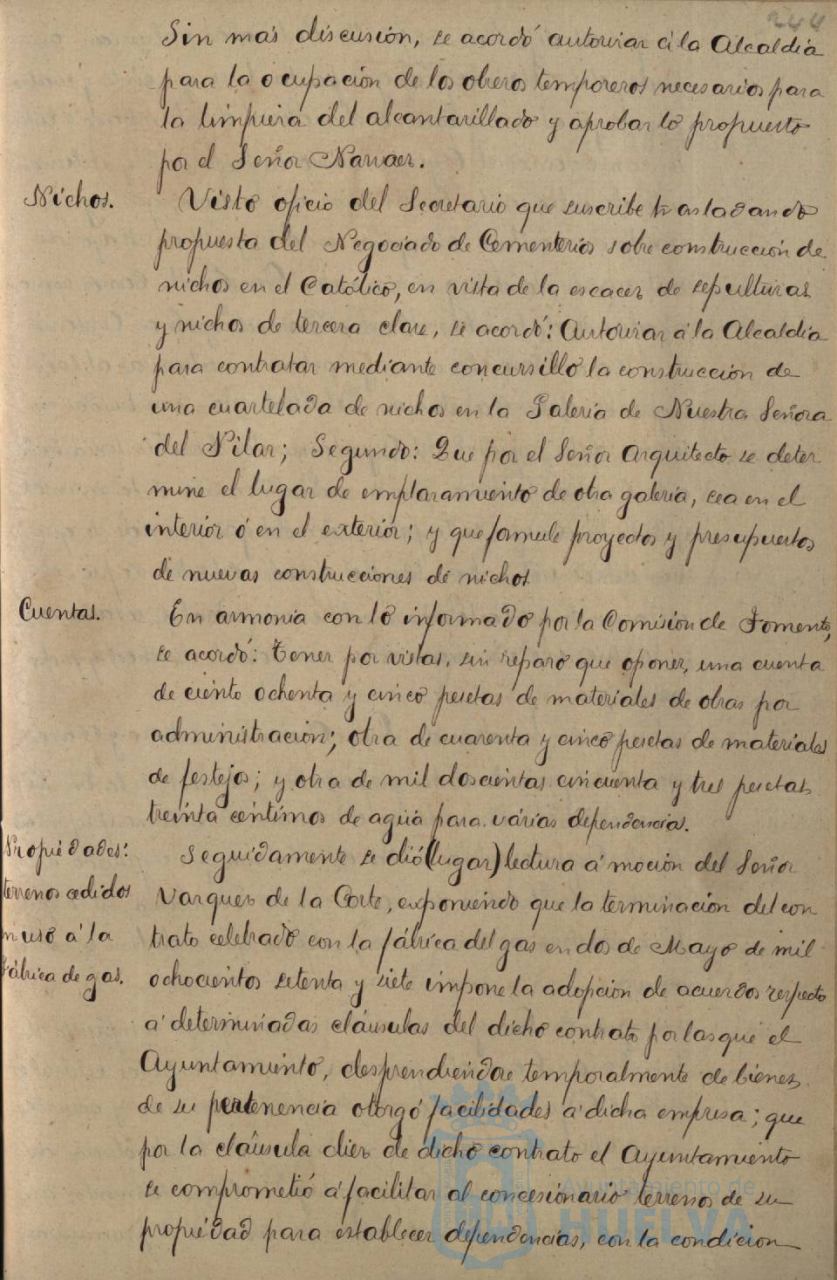 244
Sin más discusión, se acordó autorizar á la Alcaldía
para la ocupación de los obreros temporeros necesarios para
la limpieza del alcantarillado y aprobar lo propuesto
por el Señor Narvaez.
Nichos.
Visto oficio del Secretario que suscribe trasladando
propuesta del Negociado de Cementerios sobre construcción de
nichos en el Católico, en vista de la escacez de sepulturas
y nichos de tercera clase, se acordó: Autorizar á la Alcaldía
para contratar mediante concursillo la construcción de
una cuartelada de nichos en la Galería de Nuestra Señora
del Pilar; Segundo: Que por el Señor Arquitecto se deter
mine el lugar de emplazamiento de otra galería, sea en el
interior ó en el exterior; y que formule proyectos y presupuestos
de nuevas construcciones de nichos
Cuentas.
En armonía con lo informado por la Comisión de Fomento,
se acordó: Tener por vistas, sin reparo que oponer, una cuenta
de ciento ochenta y cinco pesetas de materiales de obras por
administración; otra de cuarenta y cinco pesetas de materiales
de festejos; y otra de mil doscientas cincuenta y tres pesetas
treinta céntimos de agua para várias dependencias.
Propiedades:
terrenos cedidos
en uso á la
fábrica de gas.
Seguidamente se dió (lugar) lectura á moción del Señor
Vazquez de la Corte, exponiendo que la terminación del con
trato celebrado con la fábrica del gas en dos de Mayo de mil
ochocientos setenta y siete impone la adopción de acuerdos respecto
á determinadas cláusulas del dicho contrato por las que el
Ayuntamiento, desprendiendose temporalmente de bienes
de su pertenencia otorgó facilidades á dicha empresa; que
por la cláusula diez de dicho contrato el Ayuntamiento
se comprometió á facilitar al concesionario terrenos de su
propiedad para establecer dependencias, con la condicion
Ayuntamiento de
HUELVA